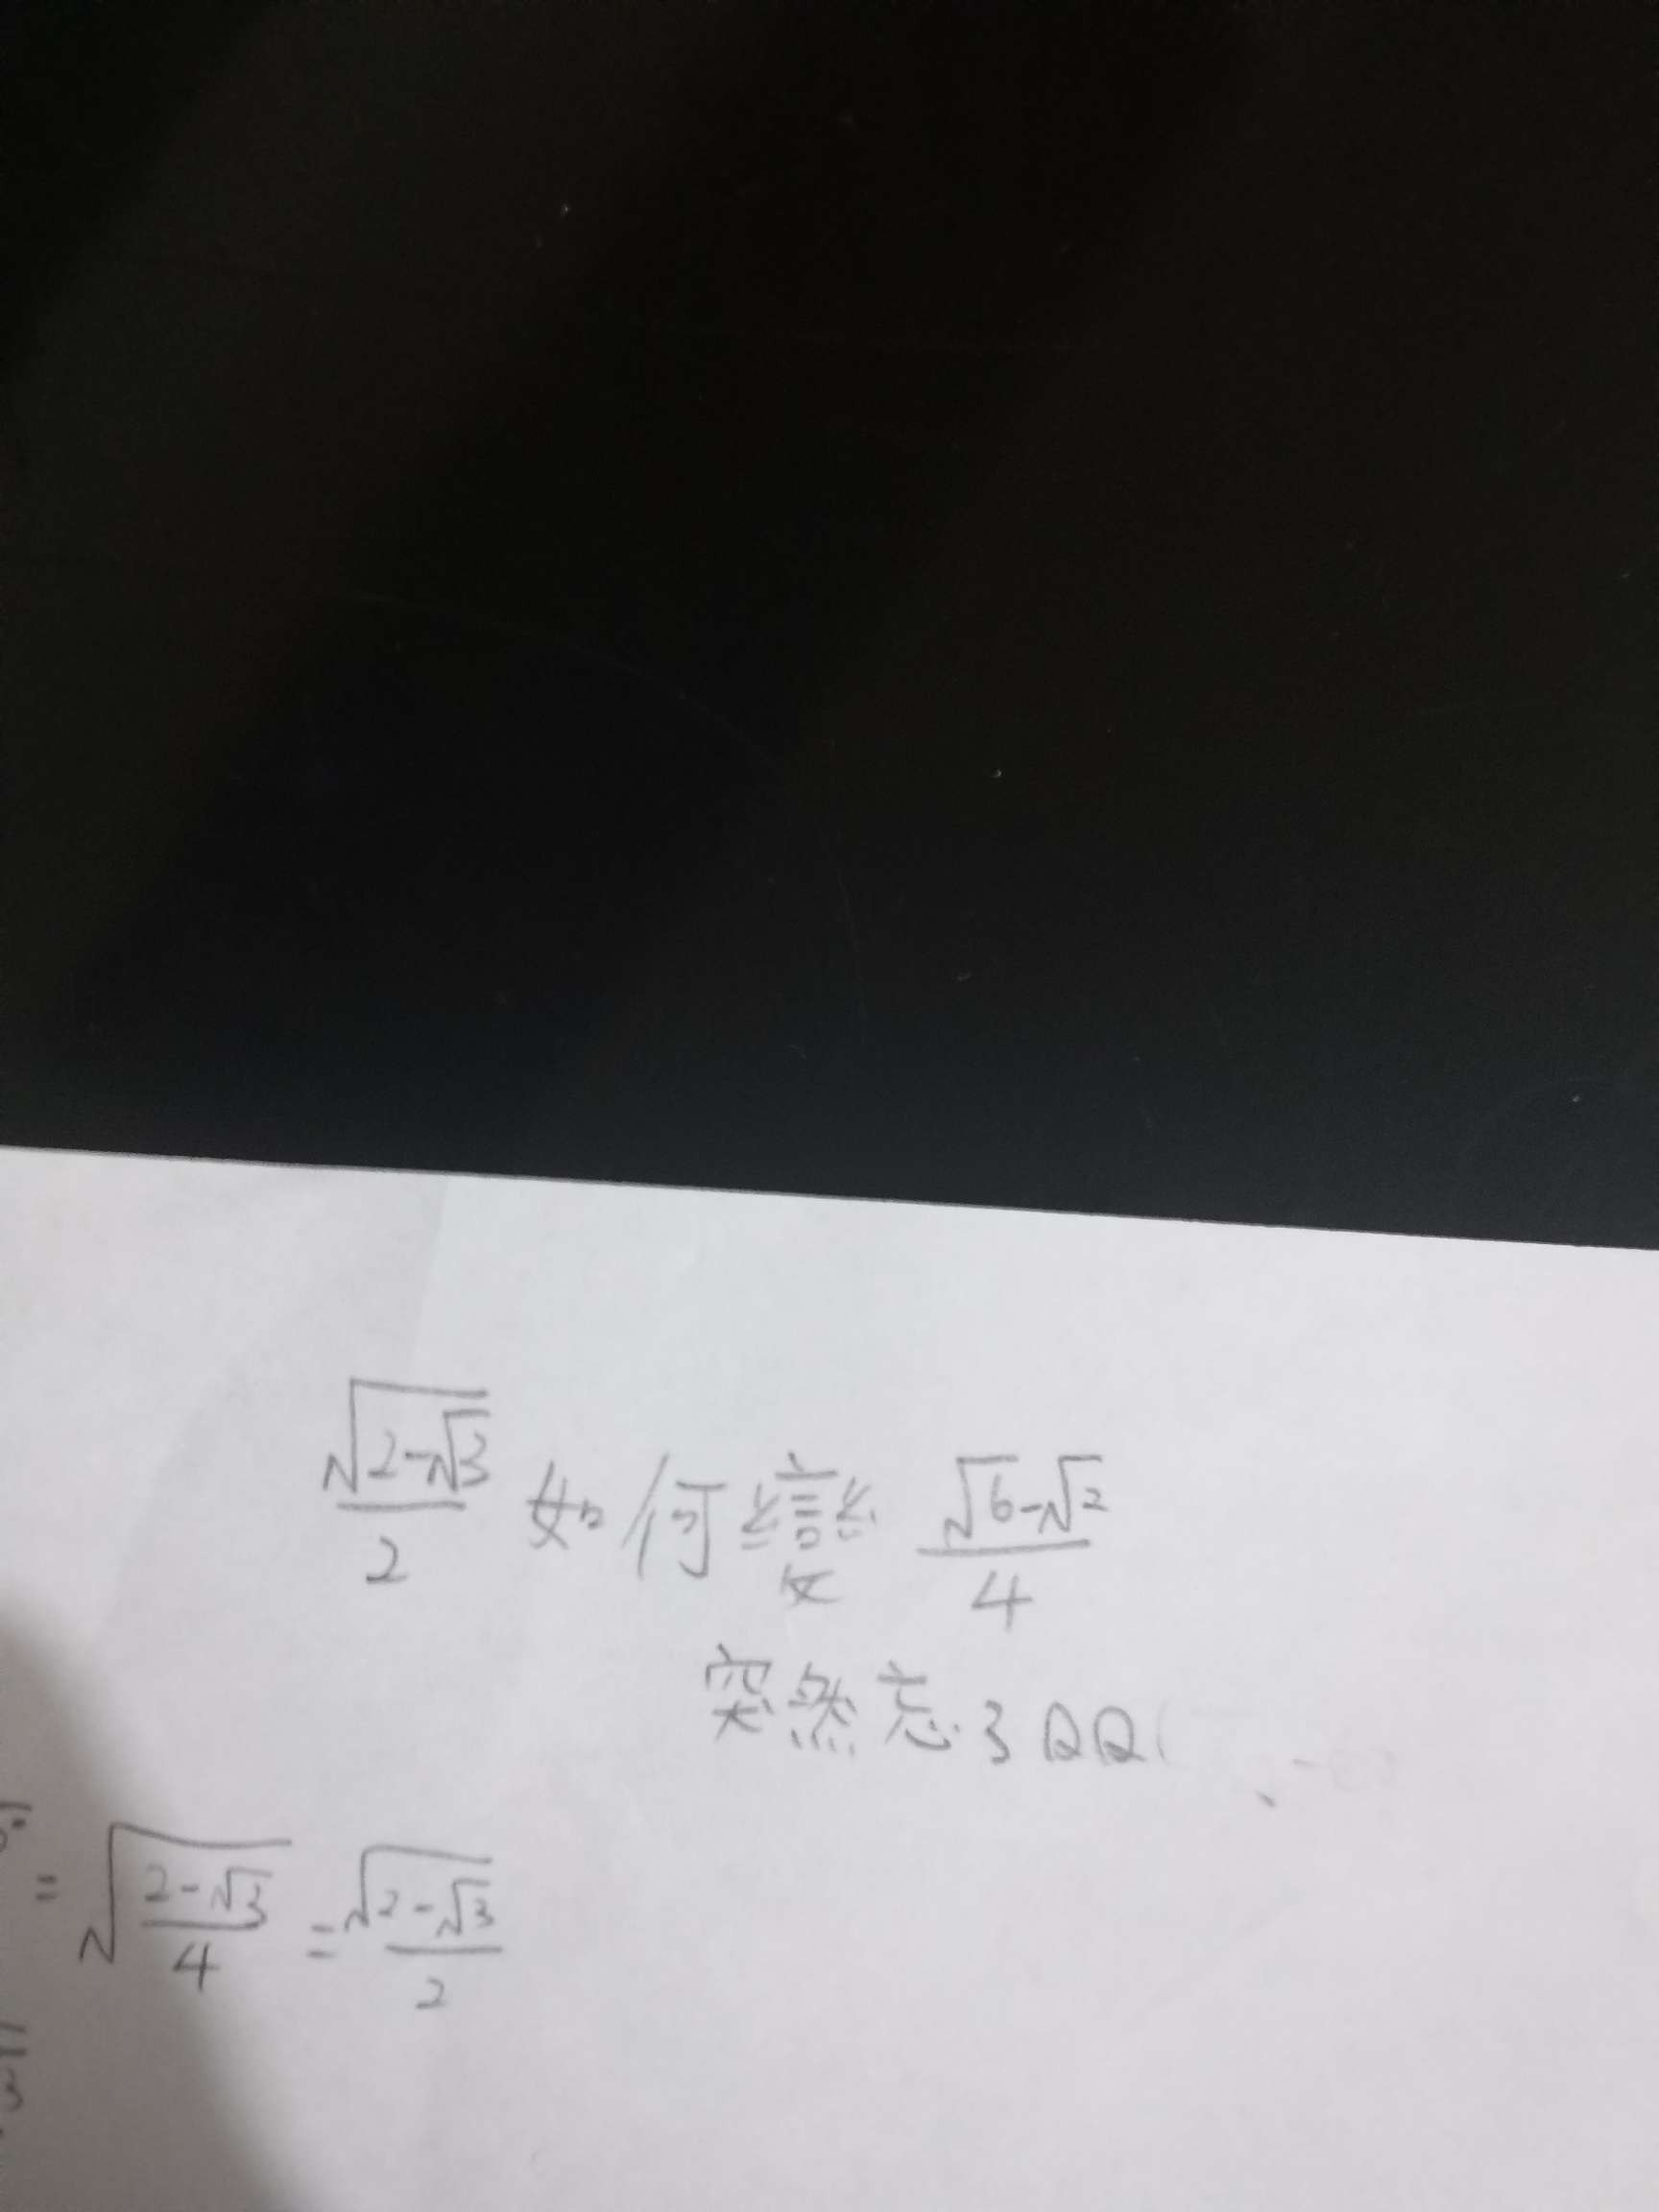 √(2-√3)/2 如何變 (√6-√2)/4
突然忘了QQ
= √((2-√3)/4) = √(2-√3)/2